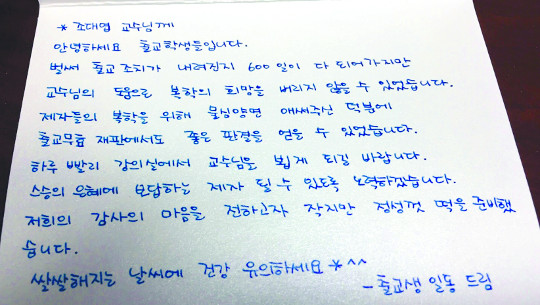 * 조대엽 교수님께
안녕하세요 출교학생들입니다.
벌써 출교 조치가 내려진지 600일이 다 되어가지만
교수님의 도움으로 복학의 희망을 버리지 않을 수 있었습니다.
제자들의 복학을 위해 물심양면 애써주신 덕분에
출교무효 재판에서도 좋은 판결을 얻을 수 있었습니다.
하루 빨리 강의실에서 교수님을 뵙게 되길 바랍니다.
스승의 은혜에 보답하는 제자 될 수 있도록 노력하겠습니다.
저희의 감사의 마음을 전하고자 작지만 정성껏 떡을 준비했
습니다.
쌀쌀해지는 날씨에 건강 유의하세요 * ^^
- 출교생 일동 드림